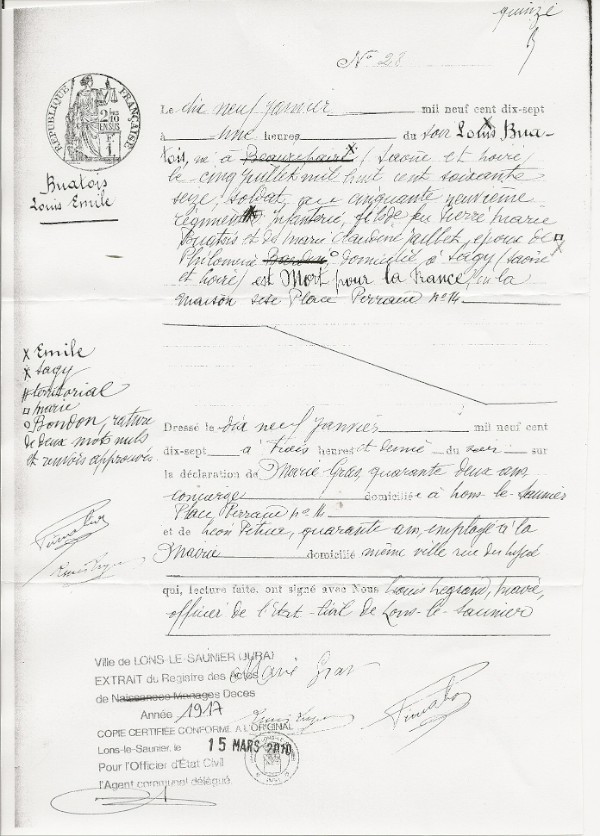 quinze
N° 28
RÉPUBLIQUE FRANÇAISE
Buatois
Louis Emile
Le dix neuf janvier mil neuf cent dix-sept
à une heures du soir Louis Bua-
tois, né à Beaurepaire / Saône et Loire /
le cinq juillet mil huit cent soixante
seize, soldat, au cinquante neuvième
régiment infanterie, fils de feu Pierre Marie
et de Marie Claudine Jaillet, époux de
Philomène domicilié à Sagy / Saône
et Loire / est Mort pour la France / en la
maison sise Place Perraud n° 14
x Emile
x Sagy
territorial
□ Marie
o Bondon, rature
de deux mots nuls
et renvois approuvés
Dressé le dix neuf janvier mil neuf cent
dix-sept à trois heures et demie du soir sur
la déclaration de Marie Gras, quarante deux ans
concierge domiciliée à Lons-le-Saunier
Place Perraud n° 14
et de Léon Petua, quarante ans, employé à la
Mairie domicilié même ville rue du Lycée
qui, lecture faite, ont signé avec Nous Louis Legrand, maire,
officier de l'état-civil de Lons-le-Saunier
Marie Gras
Ville de LONS-LE-SAUNIER (JURA)
EXTRAIT du Registre des Actes
de Naissances Mariages Décès
Année 1917
COPIE CERTIFIÉE CONFORME A L'ORIGINAL
Lons-le-Saunier, le 15 MARS 2010
Pour l'Officier d'État Civil
l'Agent communal délégué.